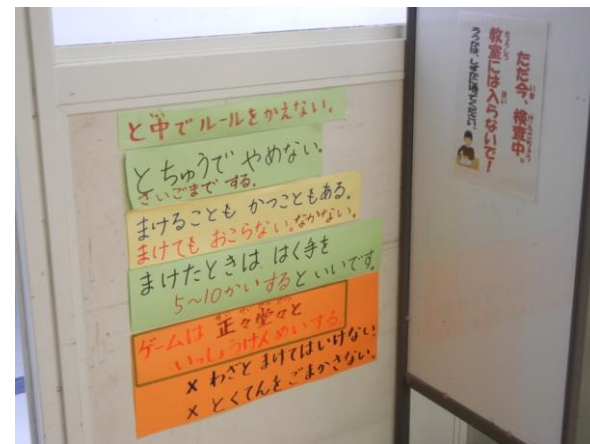 と中でルールをかえない。
とちゅうで やめない。
さいごまで する。
まけることも かつこともある。
まけても おこらない。なかない。
まけたときは はく手を
5~10かいするといいです。
ゲームは 正々堂々と
いっしょうけんめいする
× わざと まけてはいけない。
× とくてんを ごまかさない。
ただ今、検査中。
教室には入らないで!